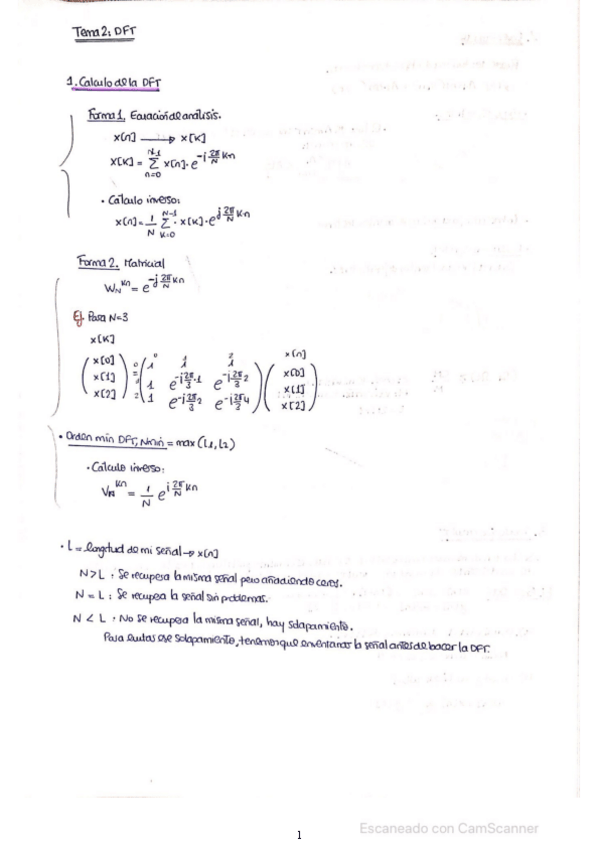 Tema 2: DFT
1. Calculo de la DFT
Forma 1. Ecuación de análisis.
x[n] → X[K]
X[K] = Σ_{n=0}^{N-1} x[n]·e^{-j 2π/N Kn}
· Calculo inverso:
x[n] = 1/N Σ_{K=0}^{N-1} · X[K]·e^{j 2π/N Kn}
Forma 2. Matricial
W_N^{Kn} = e^{-j 2π/N Kn}
Ej. Para N=3
X[K] x[n]
0 1 2
X[0] 0 1 1 1 x[0]
X[1] = 1 e^{-j 2π/3 ·1} e^{-j 2π/3 2} x[1]
X[2] 2 1 e^{-j 2π/3 2} e^{-j 2π/3 4} x[2]
· Orden min DFT, Nmin = max (L1, L2)
· Calculo inverso:
V_N^{Kn} = 1/N e^{j 2π/N Kn}
· L = longitud de mi señal → x[n]
N > L : Se recupera la misma señal pero añadiendo ceros.
N = L : Se recupera la señal sin problemas.
N < L : No se recupera la misma señal, hay solapamiento.
Para evitar ese solapamiento, tenemos que enventanar la señal antes de hacer la DFT.
Escaneado con CamScanner
1